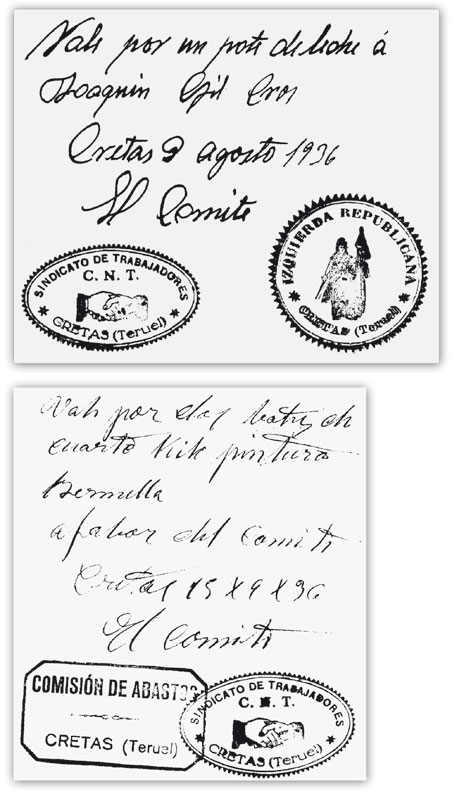 Vale por un pote de leche á
Joaquin Gil Cros
Cretas 9 agosto 1936
El Comite
SINDICATO DE TRABAJADORES
C. N. T.
CRETAS (Teruel)
IZQUIERDA REPUBLICANA
CRETAS (Teruel)
Vale por dos botes de
cuarto Kilo pintura
Bermella
a fabor del Comite
Cretas 15 X 9 X 36
El Comite
COMISIÓN DE ABASTOS
CRETAS (Teruel)
SINDICATO DE TRABAJADORES
C. N. T.
CRETAS (Teruel)